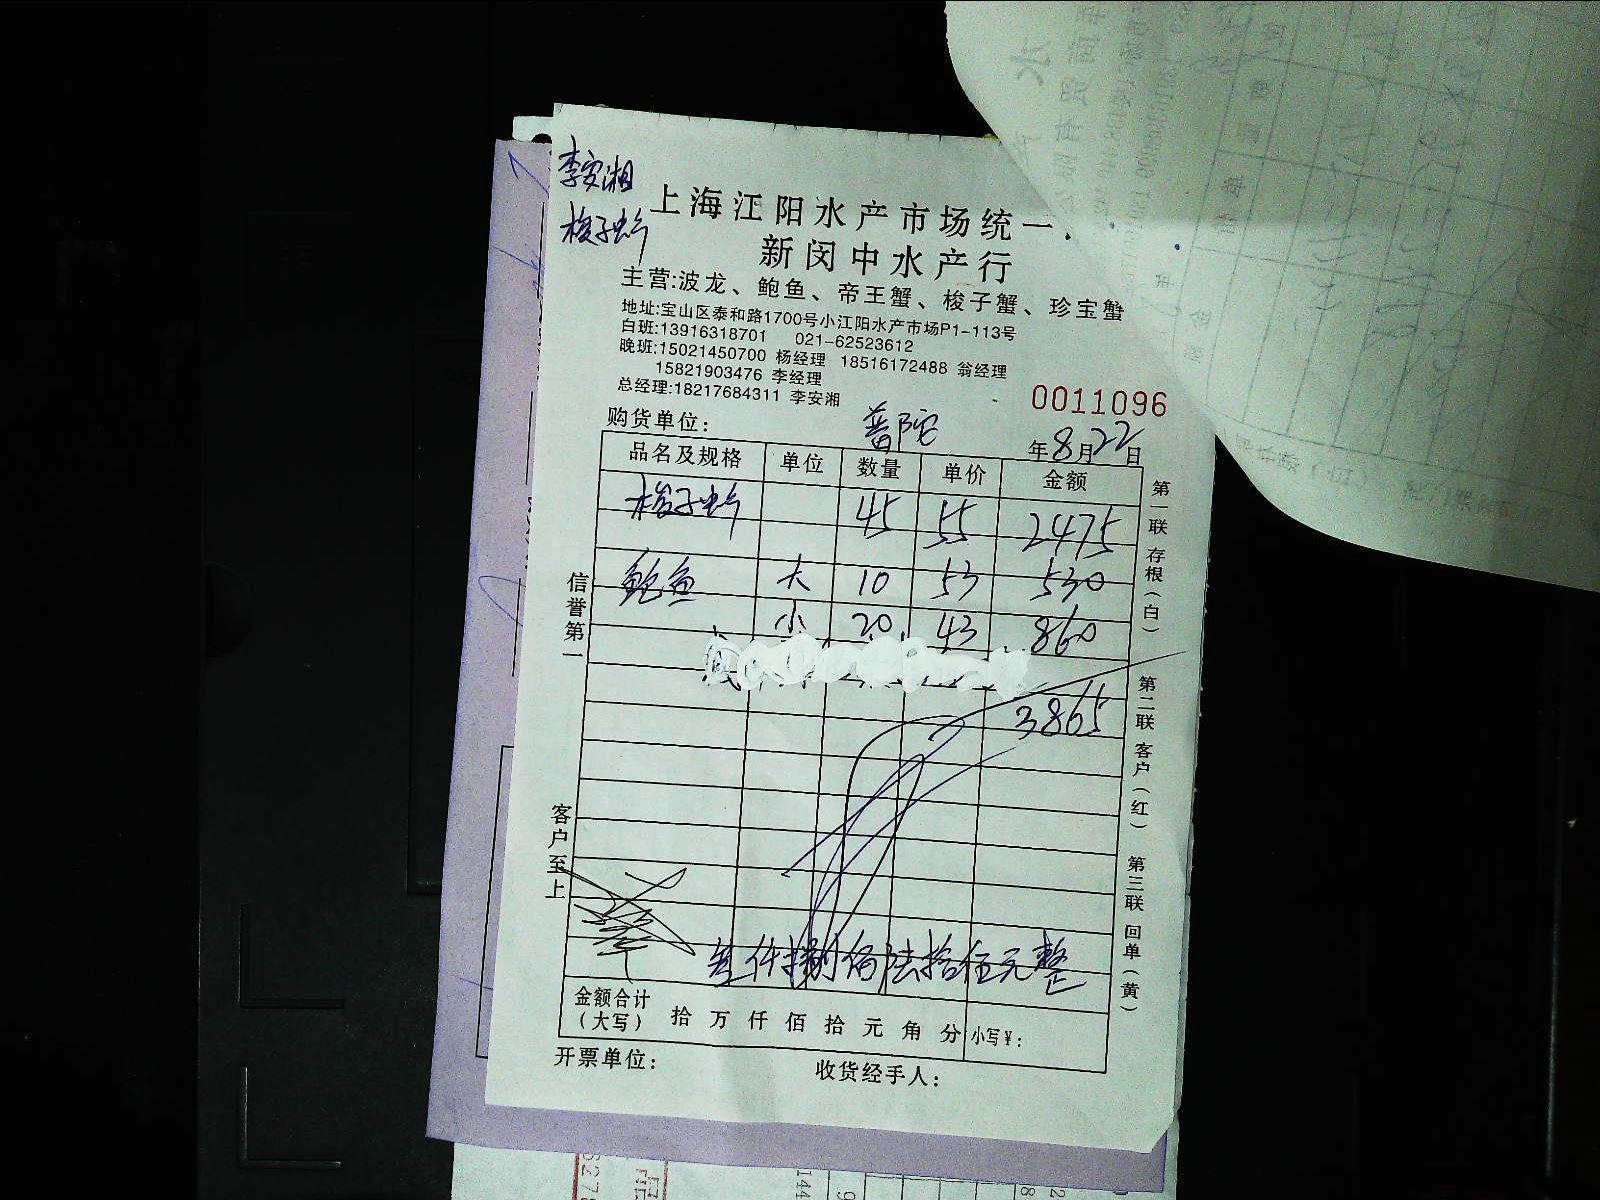 李安湘
梭子蟹
上海江阳水产市场统一
新闵中水产行
主营:波龙、鲍鱼、帝王蟹、梭子蟹、珍宝蟹
地址:宝山区泰和路1700号小江阳水产市场P1-113号
白班:13916318701 021-62523612
晚班:15021450700 杨经理 18516172488 翁经理
15821903476 李经理
总经理:18217684311 李安湘
0011096
购货单位: 普陀 年8月22日
品名及规格 单位 数量 单价 金额
梭子蟹 45 55 2475
鲍鱼 大 10 53 530
小 20 43 860
3865
叁仟捌佰陆拾伍元整
金额合计
(大写) 拾 万 仟 佰 拾 元 角 分 小写¥:
开票单位: 收货经手人:
信誉第一
客户至上
第一联 存根(白)
第二联 客户(红)
第三联 回单(黄)